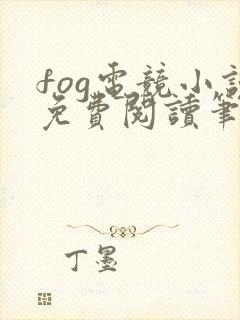 fog電競小說
免費閱讀筆
丁墨